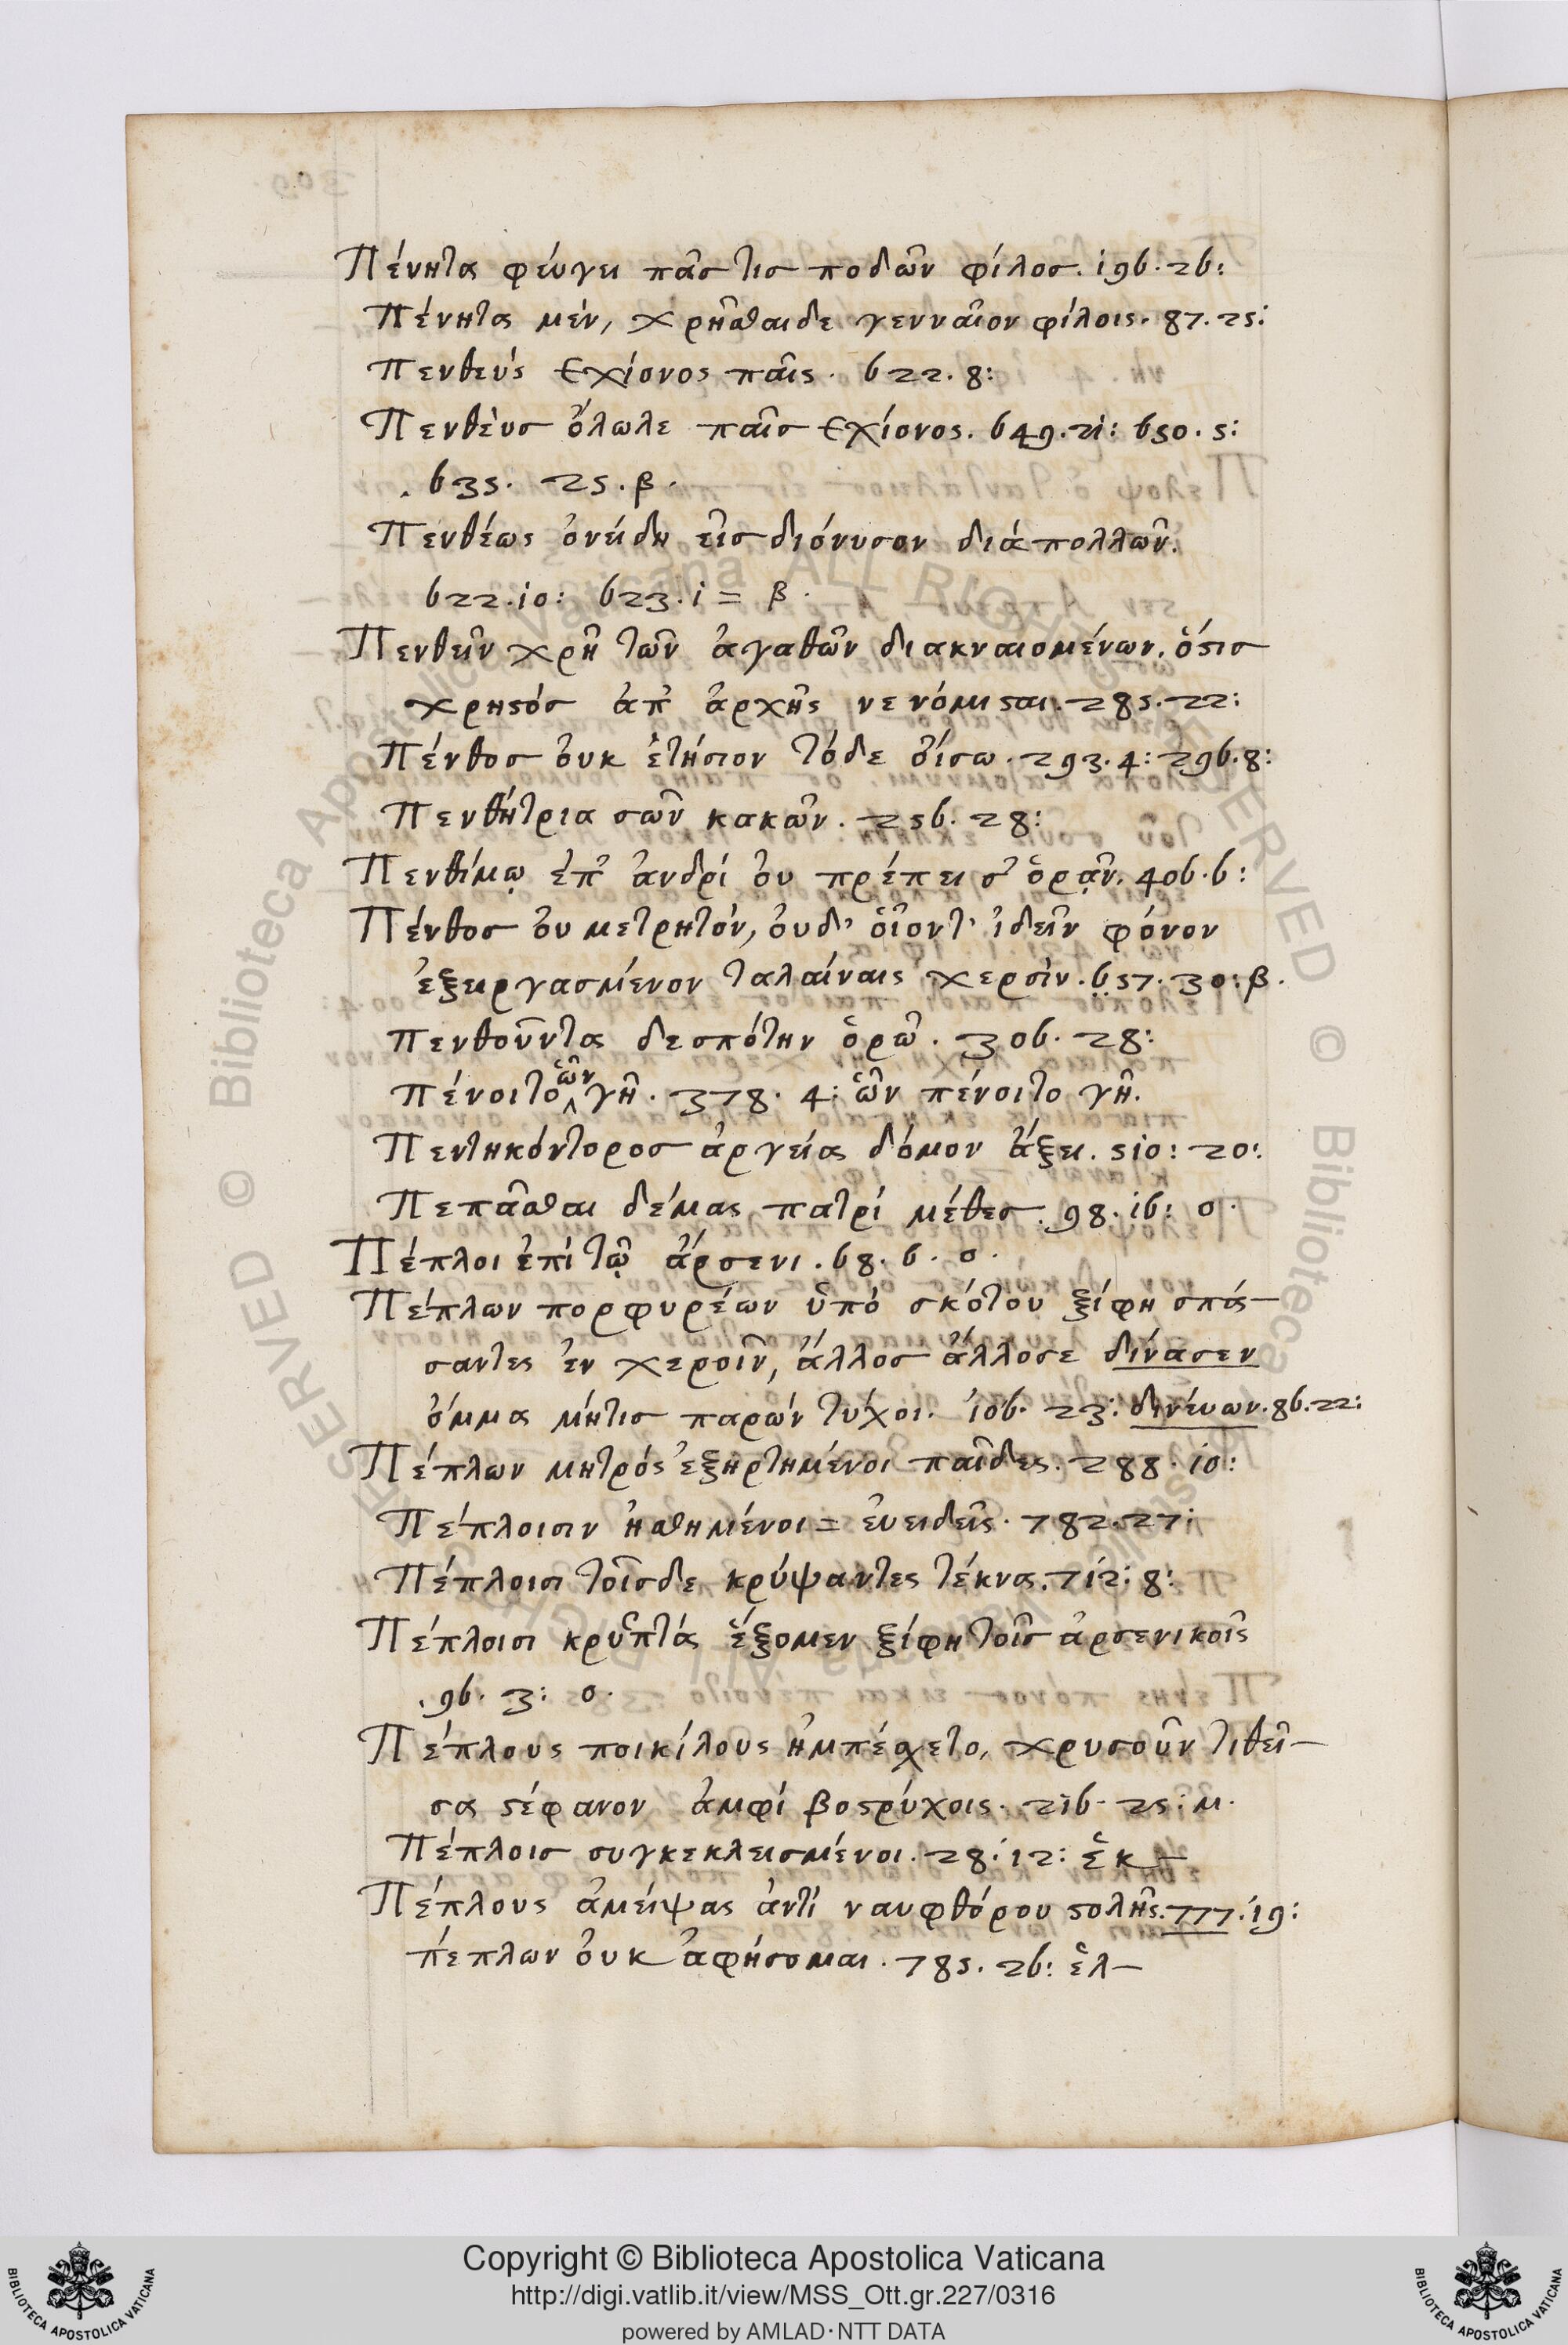 Πένητα φέυγει πᾶσ τισ ποδῶν φίλοσ. 196. 26:
Πένητα μὲν, χρῆσθαι δε γενναῖον φίλοις. 87. 25:
Πενθεὺς Εχίονος παῖς. 622. 8:
Πενθὲυσ ὄλωλε παῖσ Εχίονος. 649. 21: 650. 5:
. 635. 25. β.
Πενθέως ὀνείδη εἰσ διόνυσον διά πολλῶν.
622. 10: 623. 1 = β.
Πενθεῖν χρὴ τῶν ἀγαθῶν διακναιομένων. ὅστισ
χρηστόσ ἀπ' ἀρχῆς νενόμισται. 285. 22:
Πένθοσ ὀυκ ἐτήσιον τόδε ὀίσω. 293. 4: 296. 8:
Πενθήτρια σῶν κακῶν. 256. 28:
Πενθίμῳ ἐπ' ἀνδρί ὀυ πρέπει σ' ὁρᾷν. 406. 6:
Πένθοσ ὀυ μετρητὸν, ὀυδ' ὁῖον τ' ἰδεῖν φόνον
ἐξειργασμένον ταλαίναις χερσὶν. 657. 30: β.
πενθοῦντα δεσπότην ὁρῶ. 306. 28:
πένοιτο ὧν γῆ. 378. 4: ὧν πένοιτο γῆ.
Πεντηκόντοροσ ἀργείας δόμον ἄξει. 510: 20:
Πεπᾶσθαι δέμας πατρί μέθεσ. 98. 16: ο.
Πέπλοι ἐπὶ τῷ ἄρσενι. 68. 6. ο.
Πέπλων πορφυρέων ὑπὸ σκότου ξίφη σπά-
σαντες ἐν χεροῖν, ἄλλοσ ἄλλοσε δίνασεν
ὄμμα μήτισ παρὼν τύχοι. 106. 23: δινέυων. 86. 22:
Πέπλων μητρόσ ἐξηρτημένοι παῖδες. 288. 10:
Πέπλοισιν ἠσθημένοι = ἐυειδεῖς. 782. 27:
Πέπλοισι τοῖσδε κρύψαντες τέκνα. 712: 8:
Πέπλοισι κρυπτά ἕξομεν ξίφη τοῖσ ἀρσενικοῖς
. 96. 3: ο.
Πέπλους ποικίλους ἠμπέσχετο, χρυσοῦν τιθεῖ-
σα στέφανον ἀμφὶ βοστρύχοις. 216. 25: μ.
Πέπλοισ συγκεκλεισμένοι. 28. 12: ἐκ-
Πέπλους ἀμείψας ἀντὶ ναυφθόρου στολῆς. 777. 19:
πέπλων ὀυκ ἀφήσομαι. 785. 26: ἑλ-
Copyright © Biblioteca Apostolica Vaticana
http://digi.vatlib.it/view/MSS_Ott.gr.227/0316
powered by AMLAD·NTT DATA